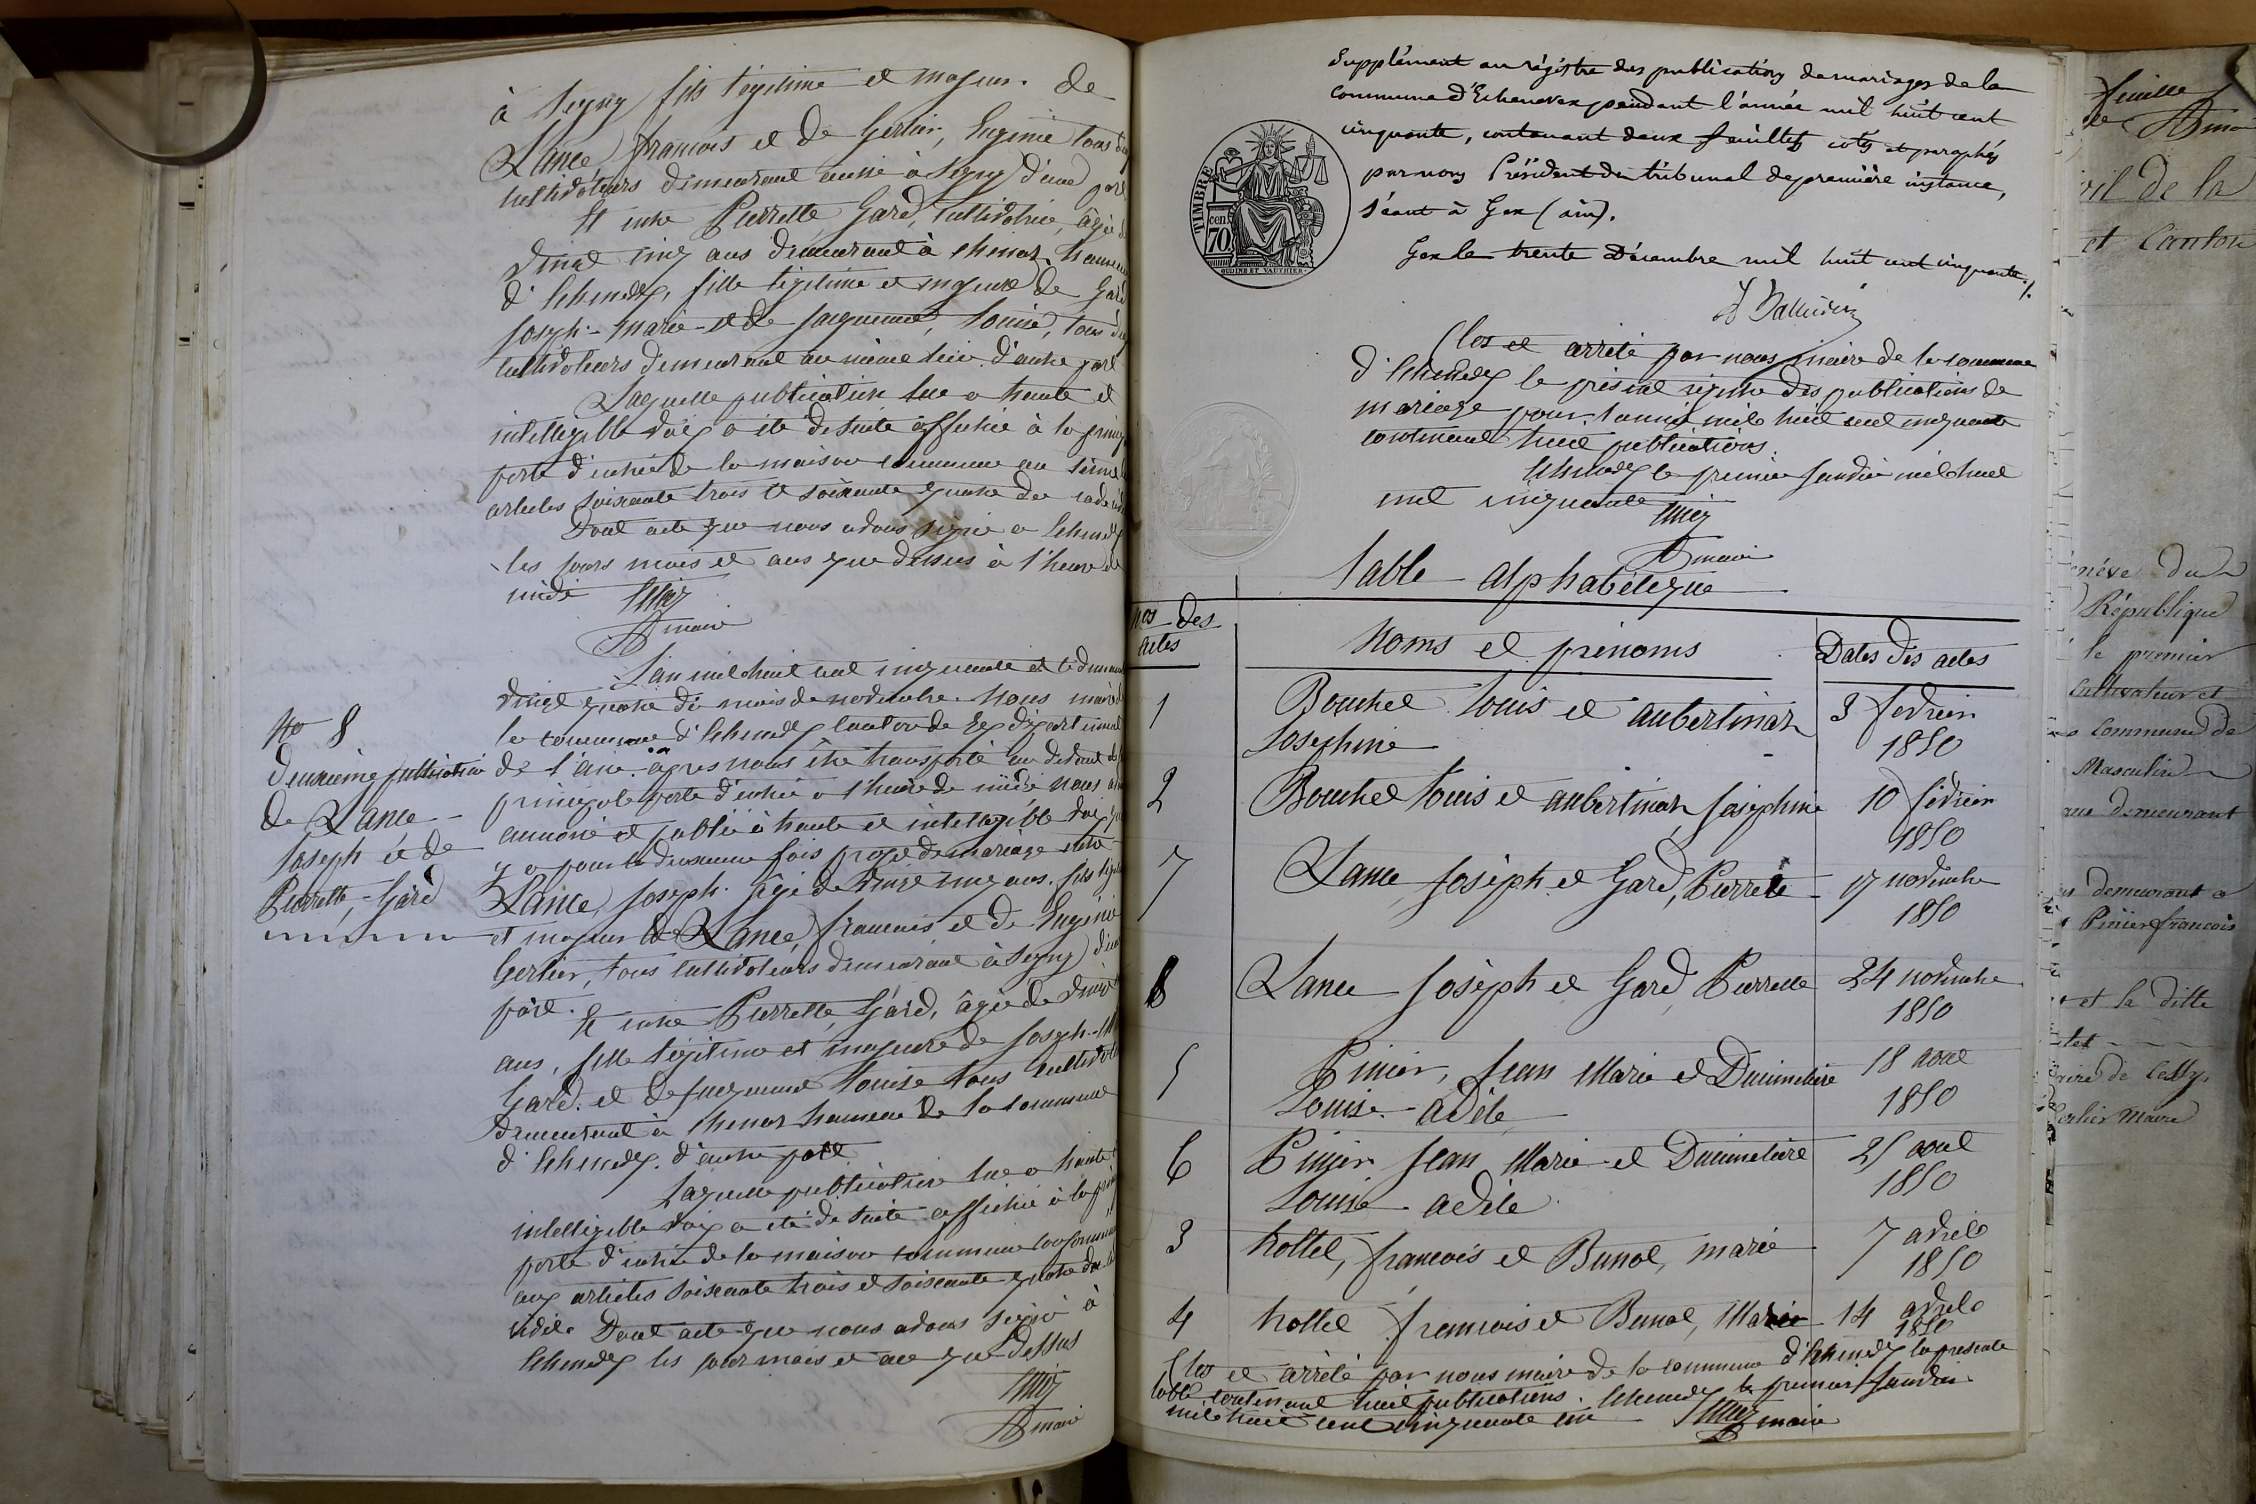 à Segny fils légitime et majeur de
Lance françois et de Gerlier, Eugénie tous d
cultivateurs demeurant aussi à Segny d'une part
Et entre Pierrette Gard, cultivatrice, âgée d
vingt cinq ans demeurant à chenaz hameau
d'Echenevex, fille légitime et majeure de Gard
joseph-marie et de jacquemet, Louise, tous d
cultivateurs demeurant au même lieu d'autre part
Laquelle publication lue a haute et
intelligible voix a été de suite affichée à la princip
porte d'entrée de la maison commune au termes
articles soixante trois et soixante quatre du code civil
Dont acte que nous avons signé a Echenevex
les jours mois et ans que dessus à l'heure de
midi
maire
No 8
deuxième publication
de Lance
Joseph et de
Pierrette, Gard
L'an mil huit cent cinquante et le dimanche
vingt quatre du mois de novembre. Nous maire d
la commune d'Echenevex canton de Gex département
de l'ain. après nous être transporté au devant de l
principale porte d'entrée a l'heure de midi nous a
annoncé et publié à haute et intelligible voix qu
y a pour la deuxième fois projet de mariage entre
Lance, joseph. âgé de vingt cinq ans. fils légit
et majeur de Lance, francois et de Eugénie
Gerlier, tous cultivateurs demeurant à Segny d'une
part.
Et entre Pierrette, Gard, âgée de vingt
ans, fille légitime et majeure de joseph-M
Gard. et de jacquemet Louise tous cultivat
demeurant à chenaz hameau de la commune
d'Echenevex. d'autre part
Laquelle publication lue a haute
intelligible voix a été de suite affichée à la prin
porte d'entrée de la maison commune conformém
aux articles soixante trois et soixante quatre du
civil. Dont acte que nous avons signé à
Echenevex les jour mois et an que dessus
maire
Supplément au régistre des publications de mariages de la
commune d'Echenevex pendant l'année mil huit cent
cinquante, contenant deux feuillets cotés et paraphés
par nous Président du tribunal de première instance,
séant à Gex (ain).
Gex le trente Décembre mil huit cent cinquante.
TIMBRE
cen.
70
OUDINE ET VAUTHIER
Clos et arrêté par nous maire de la commune
d'Echenevex le présent registre des publications de
mariage pour l'année mil huit cent cinquante
contenant huit publications.
Echenevex le premier janvier mil huit
cent cinquante
maire
Table alphabétique
Nos des
actes
Noms et prénoms
Dates des actes
1 Bouchet Louis et aubertinaz 3 fevrier
Josephine 1850
2 Bouchet Louis et aubertinaz Josephine 10 février
1850
7 Lance, joseph et Gard, Pierrette 17 novembre
1850
8 Lance Joseph et Gard, Pierrette 24 novembre
1850
5 Pinier, Jean Marie et Ducimetière 18 aout
Louise-adèle 1850
6 Pinier Jean Marie et Ducimetière 25 aout
Louise-adèle 1850
3 hottel, françois et Bunot, marie 7 avril
1850
4 hottel françois et Bunot, Marie 14 avril
1850
Clos et arrêté par nous maire de la commune d'Echenevex la présente
table contenant huit publications. Echenevex le premier Janvier
mil huit cent cinquante un maire
feuille
vil de la
et Canton
nève du
République
le premier
Cultivateur et
commune de
Masculin
demeurant
demeurant a
Pinier francois
et la ditte
maire de Cessy
Maire